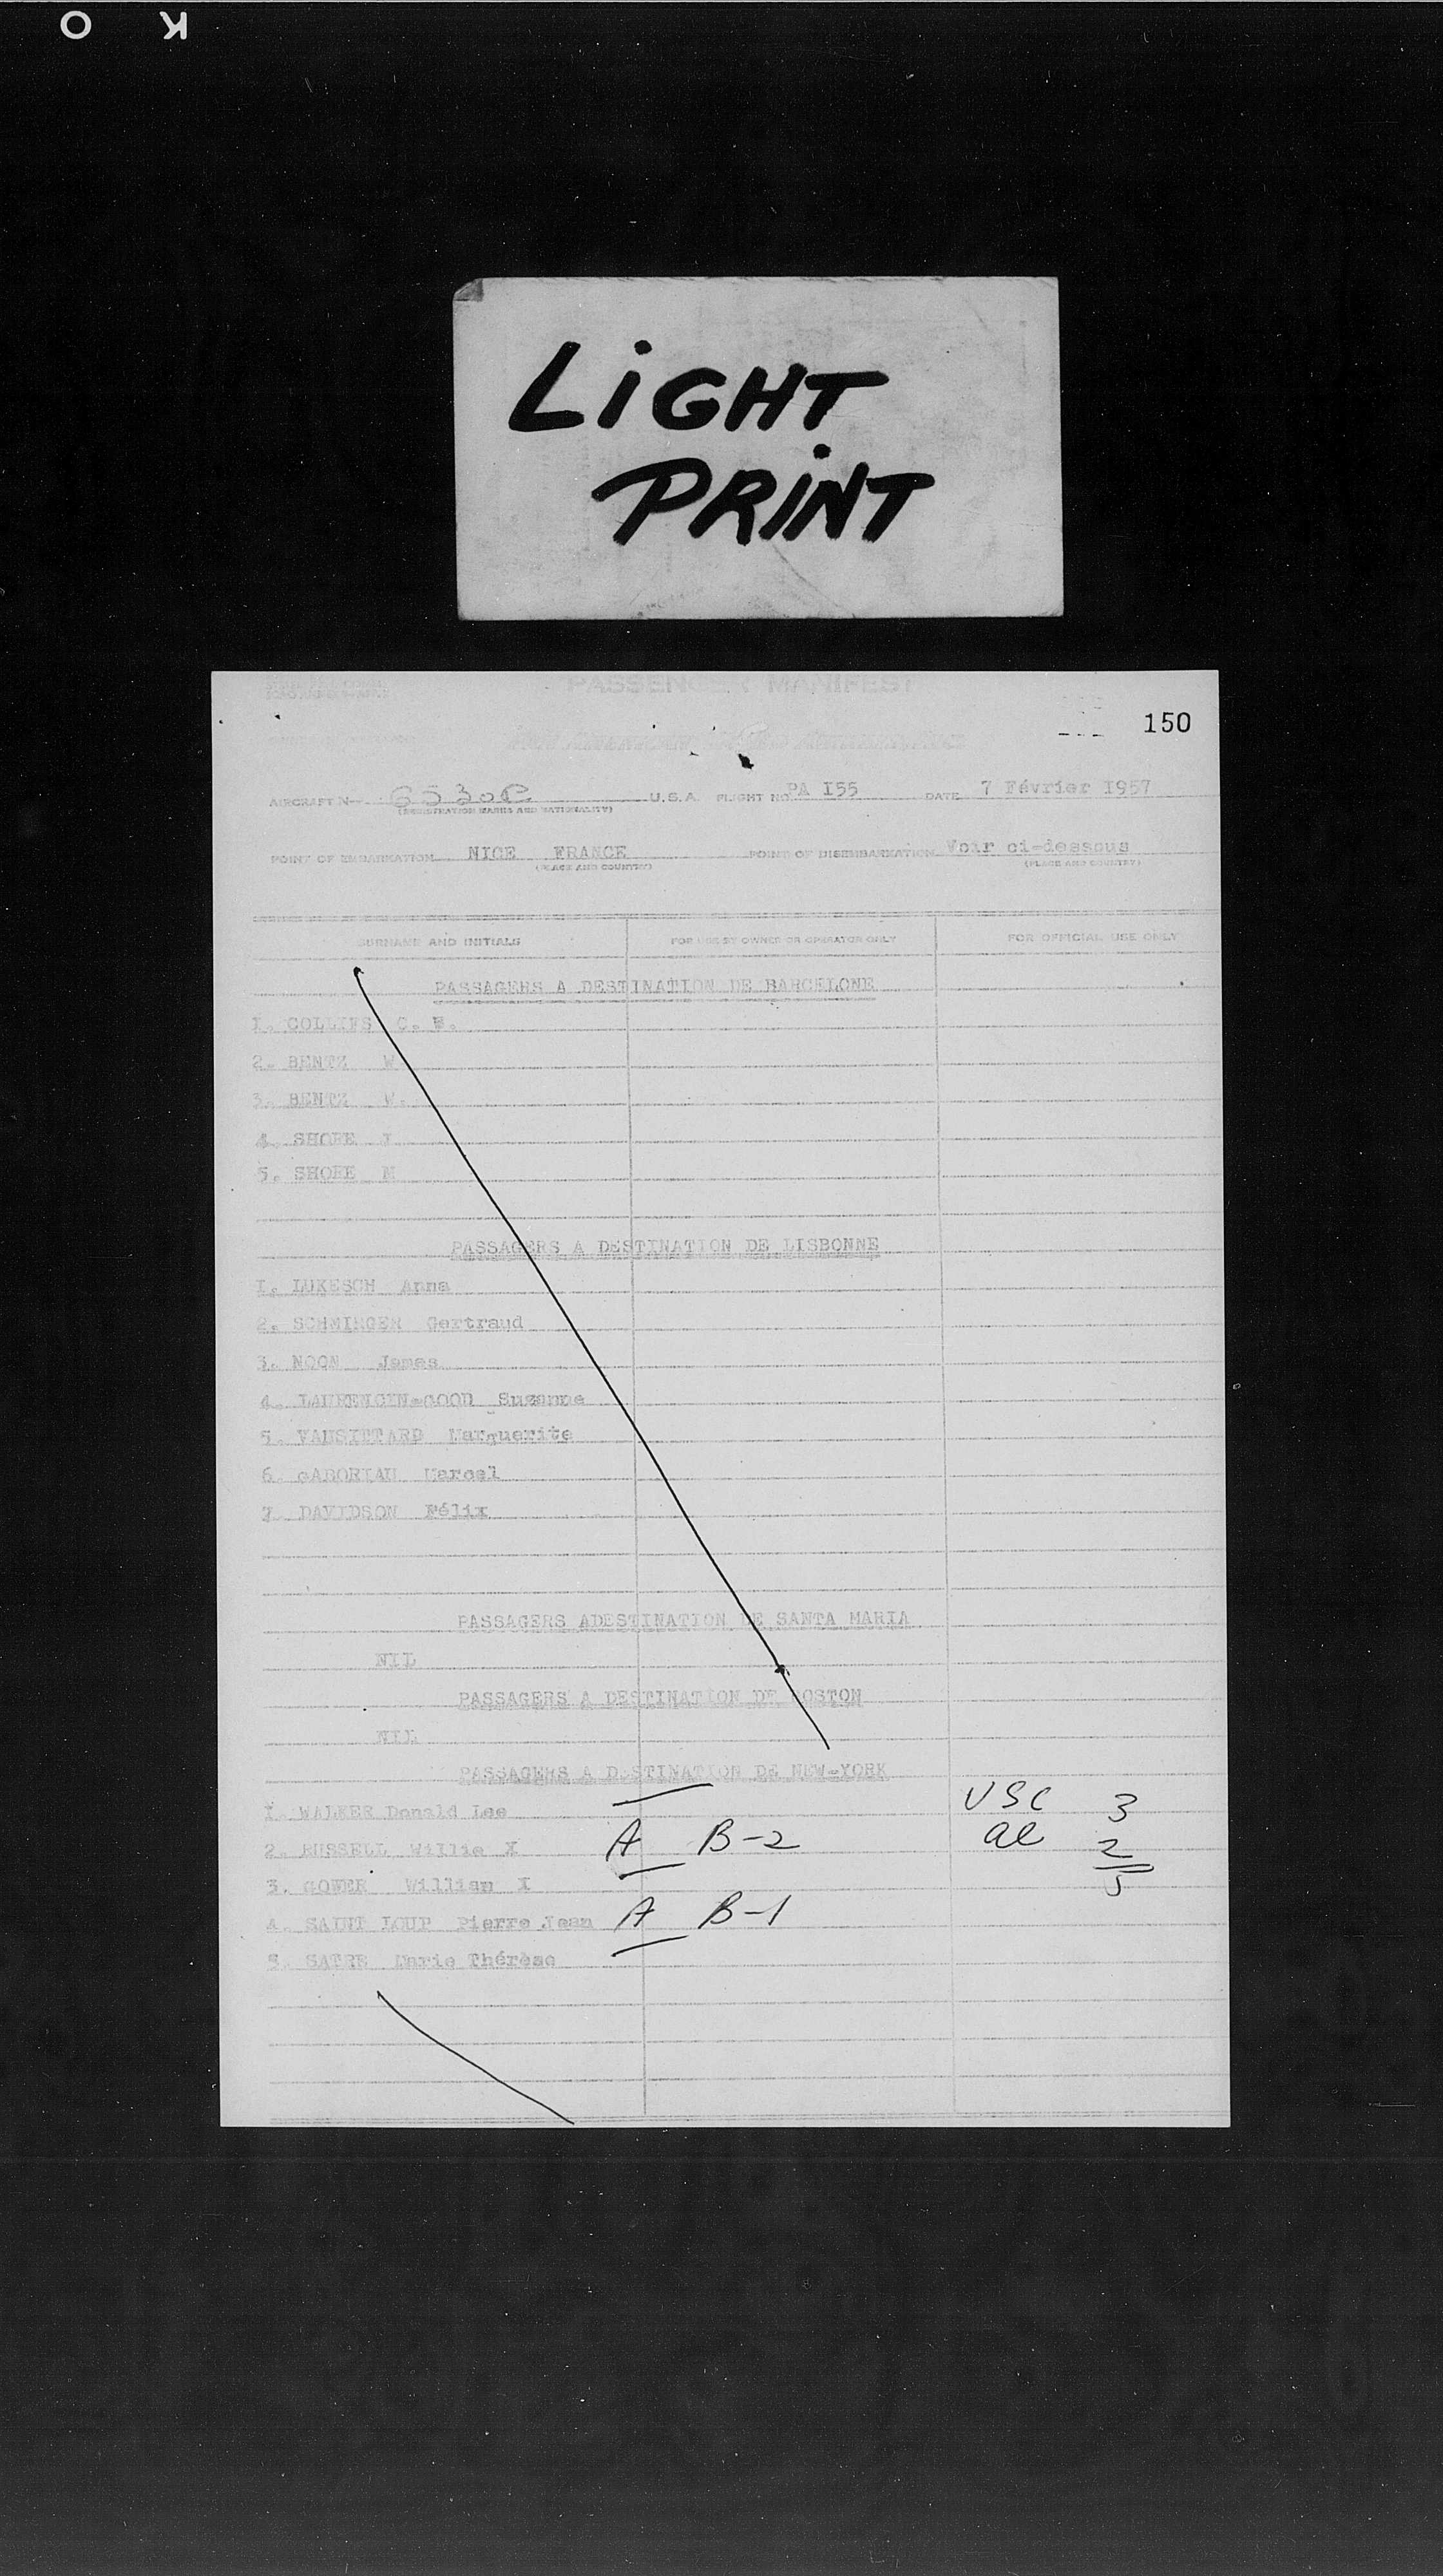 O K
LiGHT
PRiNT
PASSENGER MANIFEST
150
AIRCRAFT N— U.S.A. FLIGHT NO. PA I55 DATE 7 Février I957
(REGISTRATION MARKS AND NATIONALITY)
POINT OF EMBARKATION NICE FRANCE POINT OF DISEMBARKATION Voir ci-dessous
(PLACE AND COUNTRY) (PLACE AND COUNTRY)
SURNAME AND INITIALS FOR USE BY OWNER OR OPERATOR ONLY FOR OFFICIAL USE ONLY
PASSAGERS A DESTINATION DE BARCELONE
I. C.
2. BENTZ W
3. BENTZ W.
4. SHORE
5. SHORE M
PASSAGERS A DESTINATION DE LISBONNE
I. LUKESCH Anna
2. Gertraud
3. NOON James
4. Suzanne
5. VANSITTARD Marguerite
6. GABORIAU Marcel
7. DAVIDSON Félix
PASSAGERS ADESTINATION DE SANTA MARIA
NIL
PASSAGERS A DESTINATION DE BOSTON
NIL
PASSAGERS A DESTINATION DE NEW-YORK
I. WALKER Donald Lee USC 3
2. RUSSELL Willie X A B-2 al 2
3. GOWER William X 5
4. SAINT LOUP Pierre Jean A B-1
5. Marie Thérèse